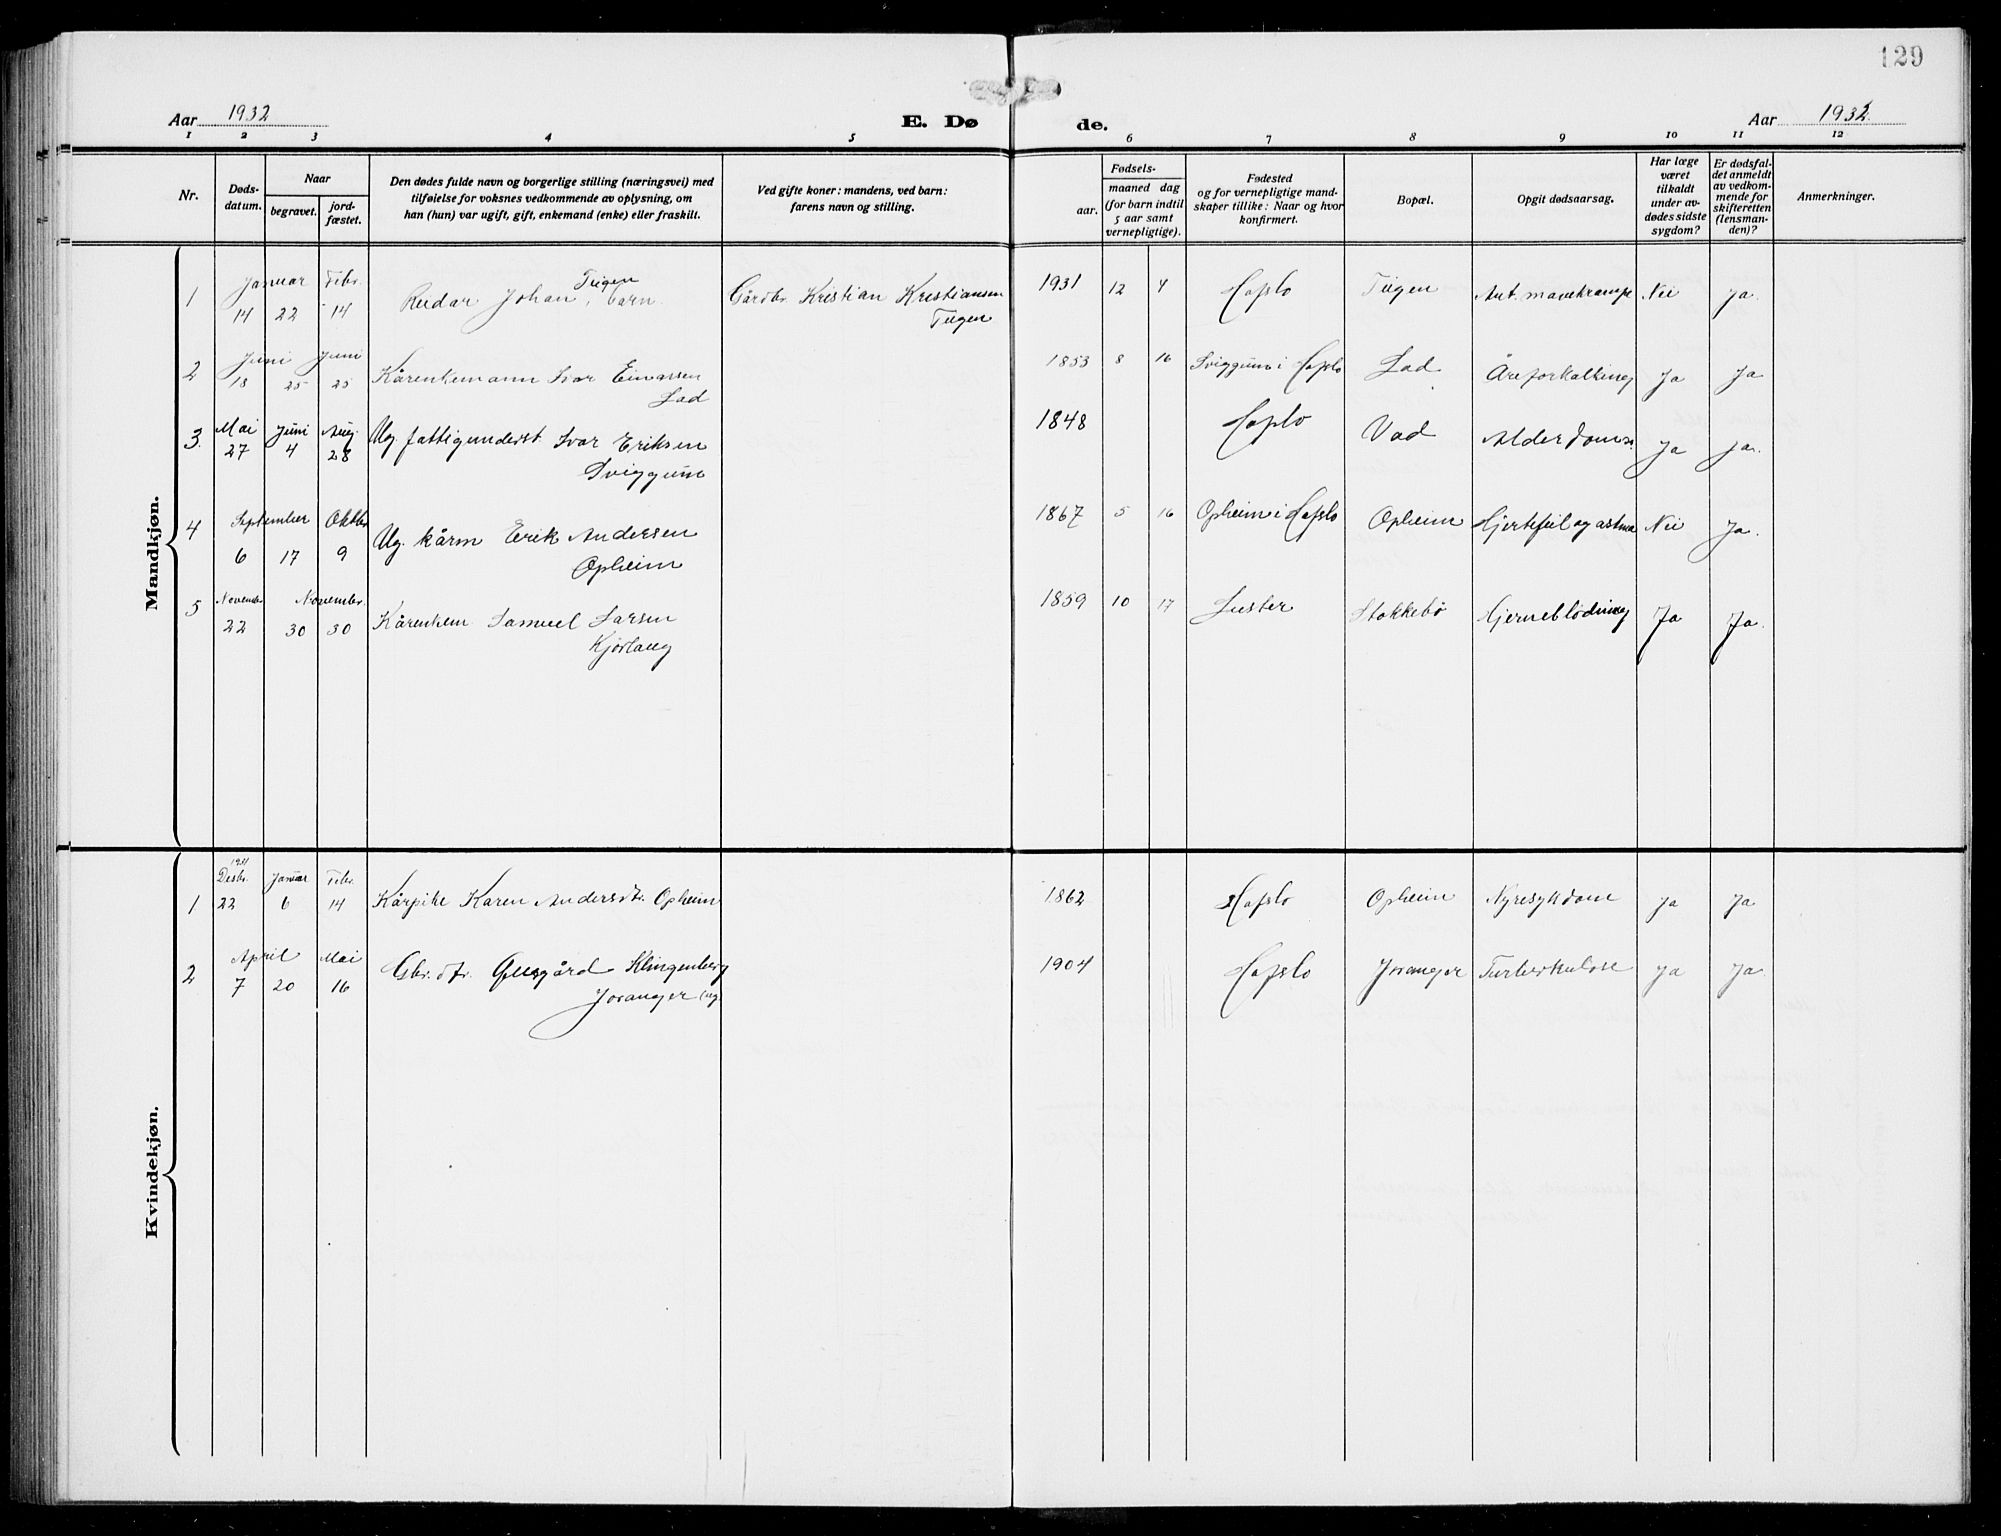 129
Aar 1932 E. Døde. Aar 1932.
1 2 3 4 5 6 7 8 9 10 11 12
Nr. Døds-datum. Naar begravet. jord-fæstet. Den dødes fulde navn og borgerlige stilling (næringsvei) med tilføielse for voksnes vedkommende av oplysning, om han (hun) var ugift, gift, enkemand (enke) eller fraskilt. Ved gifte koner: mandens, ved barn: farens navn og stilling. Fødsels- aar. maaned dag (for barn indtil 5 aar samt vernepligtige). Fødested og for vernepligtige mand-skaper tillike: Naar og hvor konfirmert. Bopæl. Opgit dødsaarsag. Har læge været tilkaldt under av-dødes sidste sygdom? Er dødsfal-det anmeldt av vedkom-mende for skifteretten (lensman-den)? Anmerkninger.
Mandkjøn.
1 Januar 14 22 Febr. 14 Reidar Johan Tugen, barn. Gårdbr. Kristian Kristiansen Tugen 1931 12 4 Hafslo Tugen Ant. mavekrampe Nei Ja.
2 Juni 18 25 Juni 25 Kårenkemann Ivar Einarsen Lad 1853 8 16 Sviggum i Hafslo Lad Åreforkalkning Ja Ja
3. Mai 27 Juni 4 Aug. 28 Ug. fattigunderst Ivar Eriksen Sviggum 1848 Hafslo Vad Alderdoms. Ja Ja.
4 September 6 17 Oktbr 9 Ug. kårm Erik Andersen Opheim 1867 5 16 Opheim i Hafslo Opheim Hjertefeil og astma Nei Ja.
5 Novembr 22 Novembr. 30 30 Kårenkem Samuel Larsen Kjørlaug 1859 10 17 Luster Stokkebø Hjerneblødning Ja Ja.
Kvindekjøn.
1 1931 Desbr. 22 Januar 6 Febr. 14 Kårpike Karen Andersdtr. Opheim 1862 Hafslo Opheim Nyresykdom Ja Ja
2 April 7 20 Mai 16 Gbr.dtr. Klingenberg Joranger (ug. 1904 Hafslo Joranger Turberkulose Ja Ja